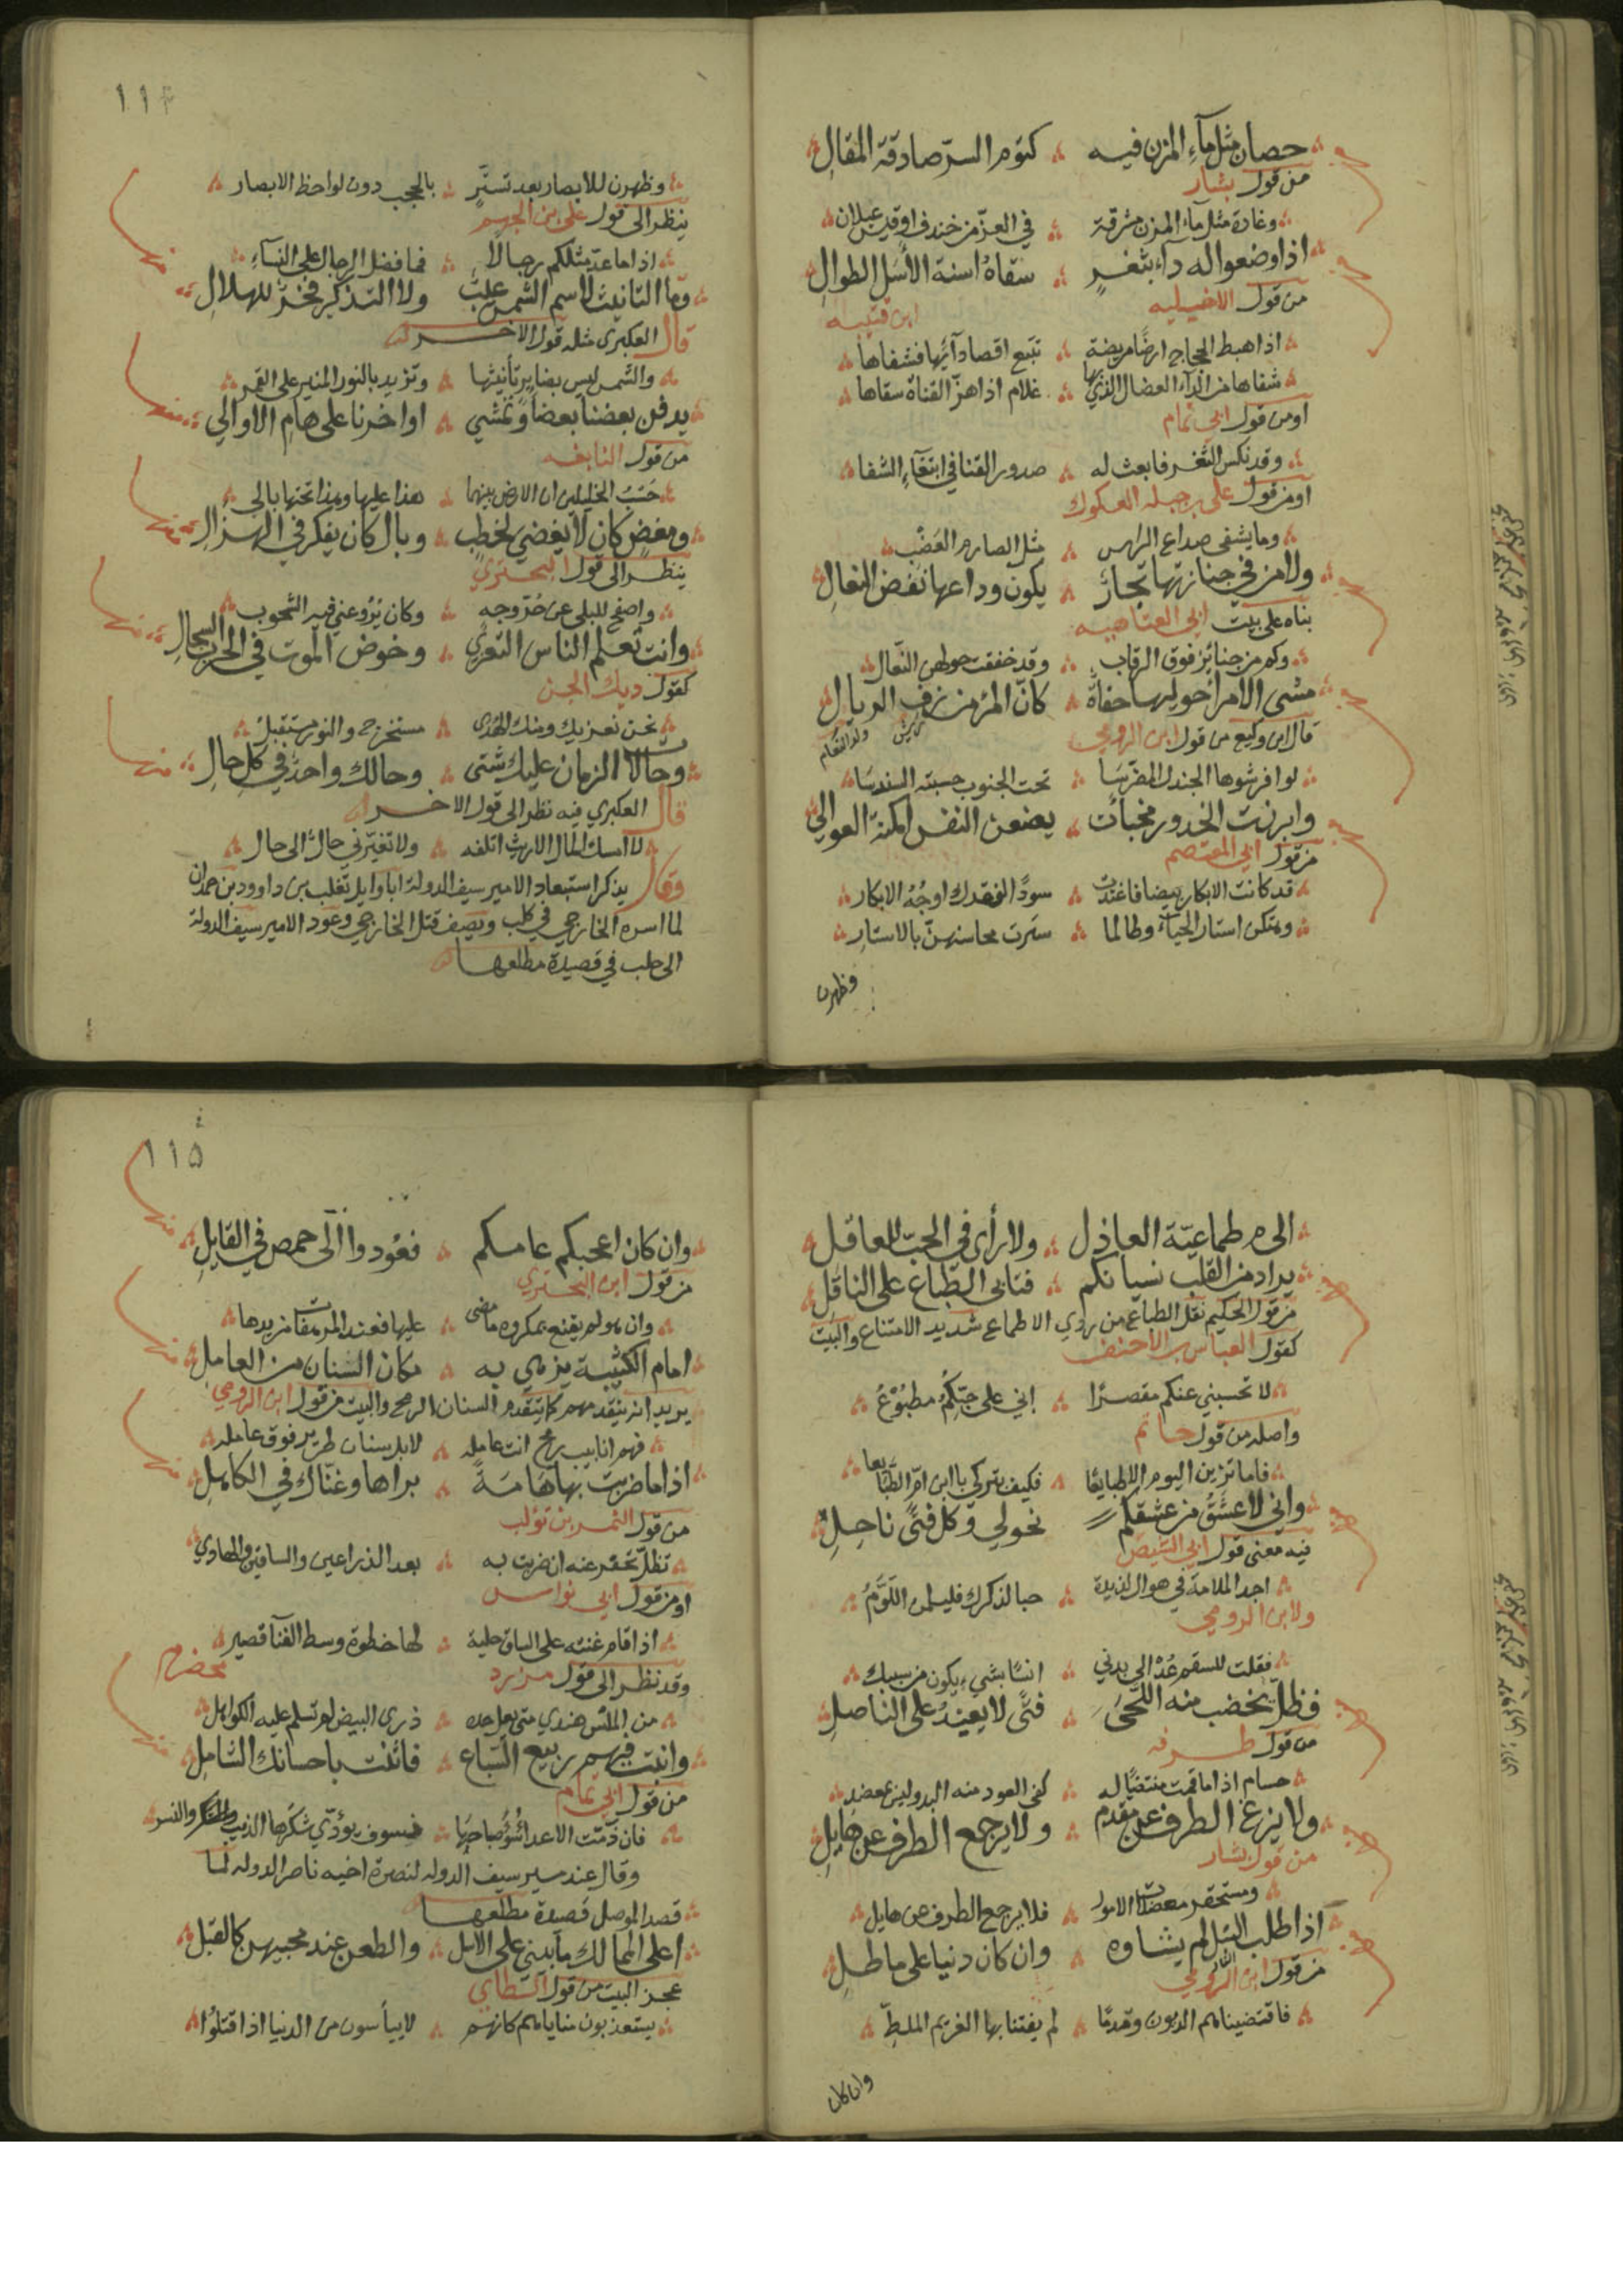 حصان مثل ماء المزن فيه ؞ كتوم السر صادقة المقال
من قول بشار
وغادة مثل ماء المزن مشرقة ؞ في العز من خندف او قيس عيلان
اذا وضعوا له داء بثغر ؞ سقاه اسنة الأسل الطوال
من قول الاخيليه
ابن قتيبه
اذا هبط الحجاج ارضا مريضة ؞ تتبع اقصا دآئها فشفاها
شفاها من الدآء العضال الذي بها ؞ غلام اذا هز القناة سقاها
او من قول ابي تمام
وقد نكس الثغر فابعث له ؞ صدور القنا في ابتغآء الشفا
او من قول علي بن جبله العكوك
وما يشفى صداع الراس ؞ مثل الصارم العضب
ولا من في جنازتها تجار ؞ يكون وداعها نفض النعال
بناه على بيت ابي العتاهيه
وكم من جنائز فوق الرقاب ؞ وقد خفقت حولهن النعال
مشى الامرا حوليها حفاة ؞ كأن المرو من زف الريال
زف ريش ولد النعام
قال ابن وكيع من قول ابن الرومي
لو افرشوها الجندل المضرسا ؞ تحت الجنوب حسبته السندسا
وابرزت الخدور مخبآت ؞ يضعن النقس امكنة الغوالي
من قول ابي المعتصم
قد كانت الابكار بيضا فاغتدت ؞ سودا لفقدك اوجه الابكار
وهتكن استار الحياء وطالما ؞ سترت محاسنهن بالاستار
وظهرن
١١٤
وظهرن للابصار بعد تستر ؞ بالحجب دون لواحظ الابصار
ينظر الى قول علي بن الجهم
اذا ما عد مثلكم رجالا ؞ فما فضل الرجال على النسآء
وما التانيث لاسم الشمس عيب ؞ ولا التذكير فخر للهلال
منها
قال العكبري مثله قول الاخر
والشمس ليس بضاير تأنيثها ؞ وتزيد بالنور المنير على القمر
يدفن بعضنا بعضا وتمشي ؞ اواخرنا على هام الاوالي
منها
من قول النابغه
حسب الخليلين ان الارض بينهما ؞ هذا عليها وهذا تحتها بالي
ومغض كان لا يغضي لخطب ؞ وبال كان يفكر في الهزال
منها
ينظر الى قول البحتري
واصفح للبلى عن حر وجه ؞ وكان يروعني فيه الشحوب
وانت تعلم الناس التعزي ؞ وخوض الموت في الحرب السجال
منها
كقول ديك الجن
نحن نعزيك ومنك الهدى ؞ مستخرج والنور مستقبل
وحالات الزمان عليك شتى ؞ وحالك واحد في كل حال
منها
قال العكبري فيه نظر الى قول الاخر
لا امسك المال الا ريث اتلفه ؞ ولا تغيرني حال الى حال
وقال يذكر استبعاد الامير سيف الدولة ابا وايل تغلب بن داوود بن حمدان
لما اسره الخارجي في كلب ويصف قتل الخارجي وعود الامير سيف الدولة
الى حلب في قصيدة مطلعها
الى م طماعية العاذل ؞ ولا رأى في الحب للعاقل
يراد من القلب نسيانكم ؞ وتابى الطباع على الناقل
من قول الحكيم نقل الطباع من ردي الاطماع شديد الامتناع والبيت
كقول العباس بن الاحنف
لا تحسبيني عنكم مقصرا ؞ إني على حبكم مطبوع
واصله من قول حاتم
فاما ترين اليوم الا طبايعا ؞ فكيف بتركي يا ابن ام الطبايعا
واني لاعشق من عشقكم ؞ نحولي وكل فتى ناحل
فيه معنى قول ابي الشيص
اجد الملامة في هواك لذيذة ؞ حبا لذكرك فليلمن اللوم
ولابن الرومي
فقلت للسقم عد الى بدني ؞ انسا بشيء يكون من سببك
فظل يخضب منه اللحى ؞ فتى لا يعيد على الناصل
من قول طرفه
حسام اذا ما قمت منتضيا له ؞ كفى العود منه البدو ليس بمعضد
ولا يزع الطرف عن مقدم ؞ ولا يرجع الطرف عن هايل
من قول بشار
ومستحقر معضلات الامور ؞ فلا يرجع الطرف عن هايل
اذا طلب التبل لم يشاوه ؞ وان كان دينا على ماطل
من قول ابن الرومي
فاقتضيناهم الديون وقدما ؞ لم يفتنا بها الغريم الملط
وان كان
١١٥
وان كان اعجبكم عامكم ؞ فعودوا الى حمص في القابل
منها
من قول ابن البحتري
وان هو لم يقنع بمكروه ما مضى ؞ عليها فعند المرهفات مزيدها
امام الكتيبة يزهي به ؞ مكان السنان من العامل
منها
يريد انه يتقدمهم كما يتقدم السنان الرمح والبيت من قول ابن الرومي
فهم انابيب رمح انت عامله ؞ لا بل سنان طرير فوق عامله
اذا ما ضربت بها هامة ؞ براها وغناك في الكاهل
منها
من قول النمر بن تولب
تظل تحفر عنه ان ضربت به ؞ بعد الذراعين والساقين والهادي
او من قول ابي نواس
اذا قام غنته على الساق حلية ؞ لها خطوة وسط الفنآ قصير
وقد نظر الى قول مزرد مخضرم
من الملس هندي متى يعل حده ؞ ذرى البيض لم تسلم عليه الكواهل
وانبت فيهم ربيع السباع ؞ فاثنت باحسانك الشامل
منها
من قول ابي تمام
فان ذمت الاعدا سوء صباحها ؞ فسوف يؤدي شكرها الذيب والنسر
وقال عند مسير سيف الدوله لنصرة اخيه ناصر الدوله لما
قصد الموصل قصيدة مطلعها
اعلى الممالك ما يبنى على الاسل ؞ والطعن عند محبيهن كالقبل
عجز البيت من قول الطاي
يستعذبون مناياهم كانهم ؞ لا ييأسون من الدنيا اذا قتلوا